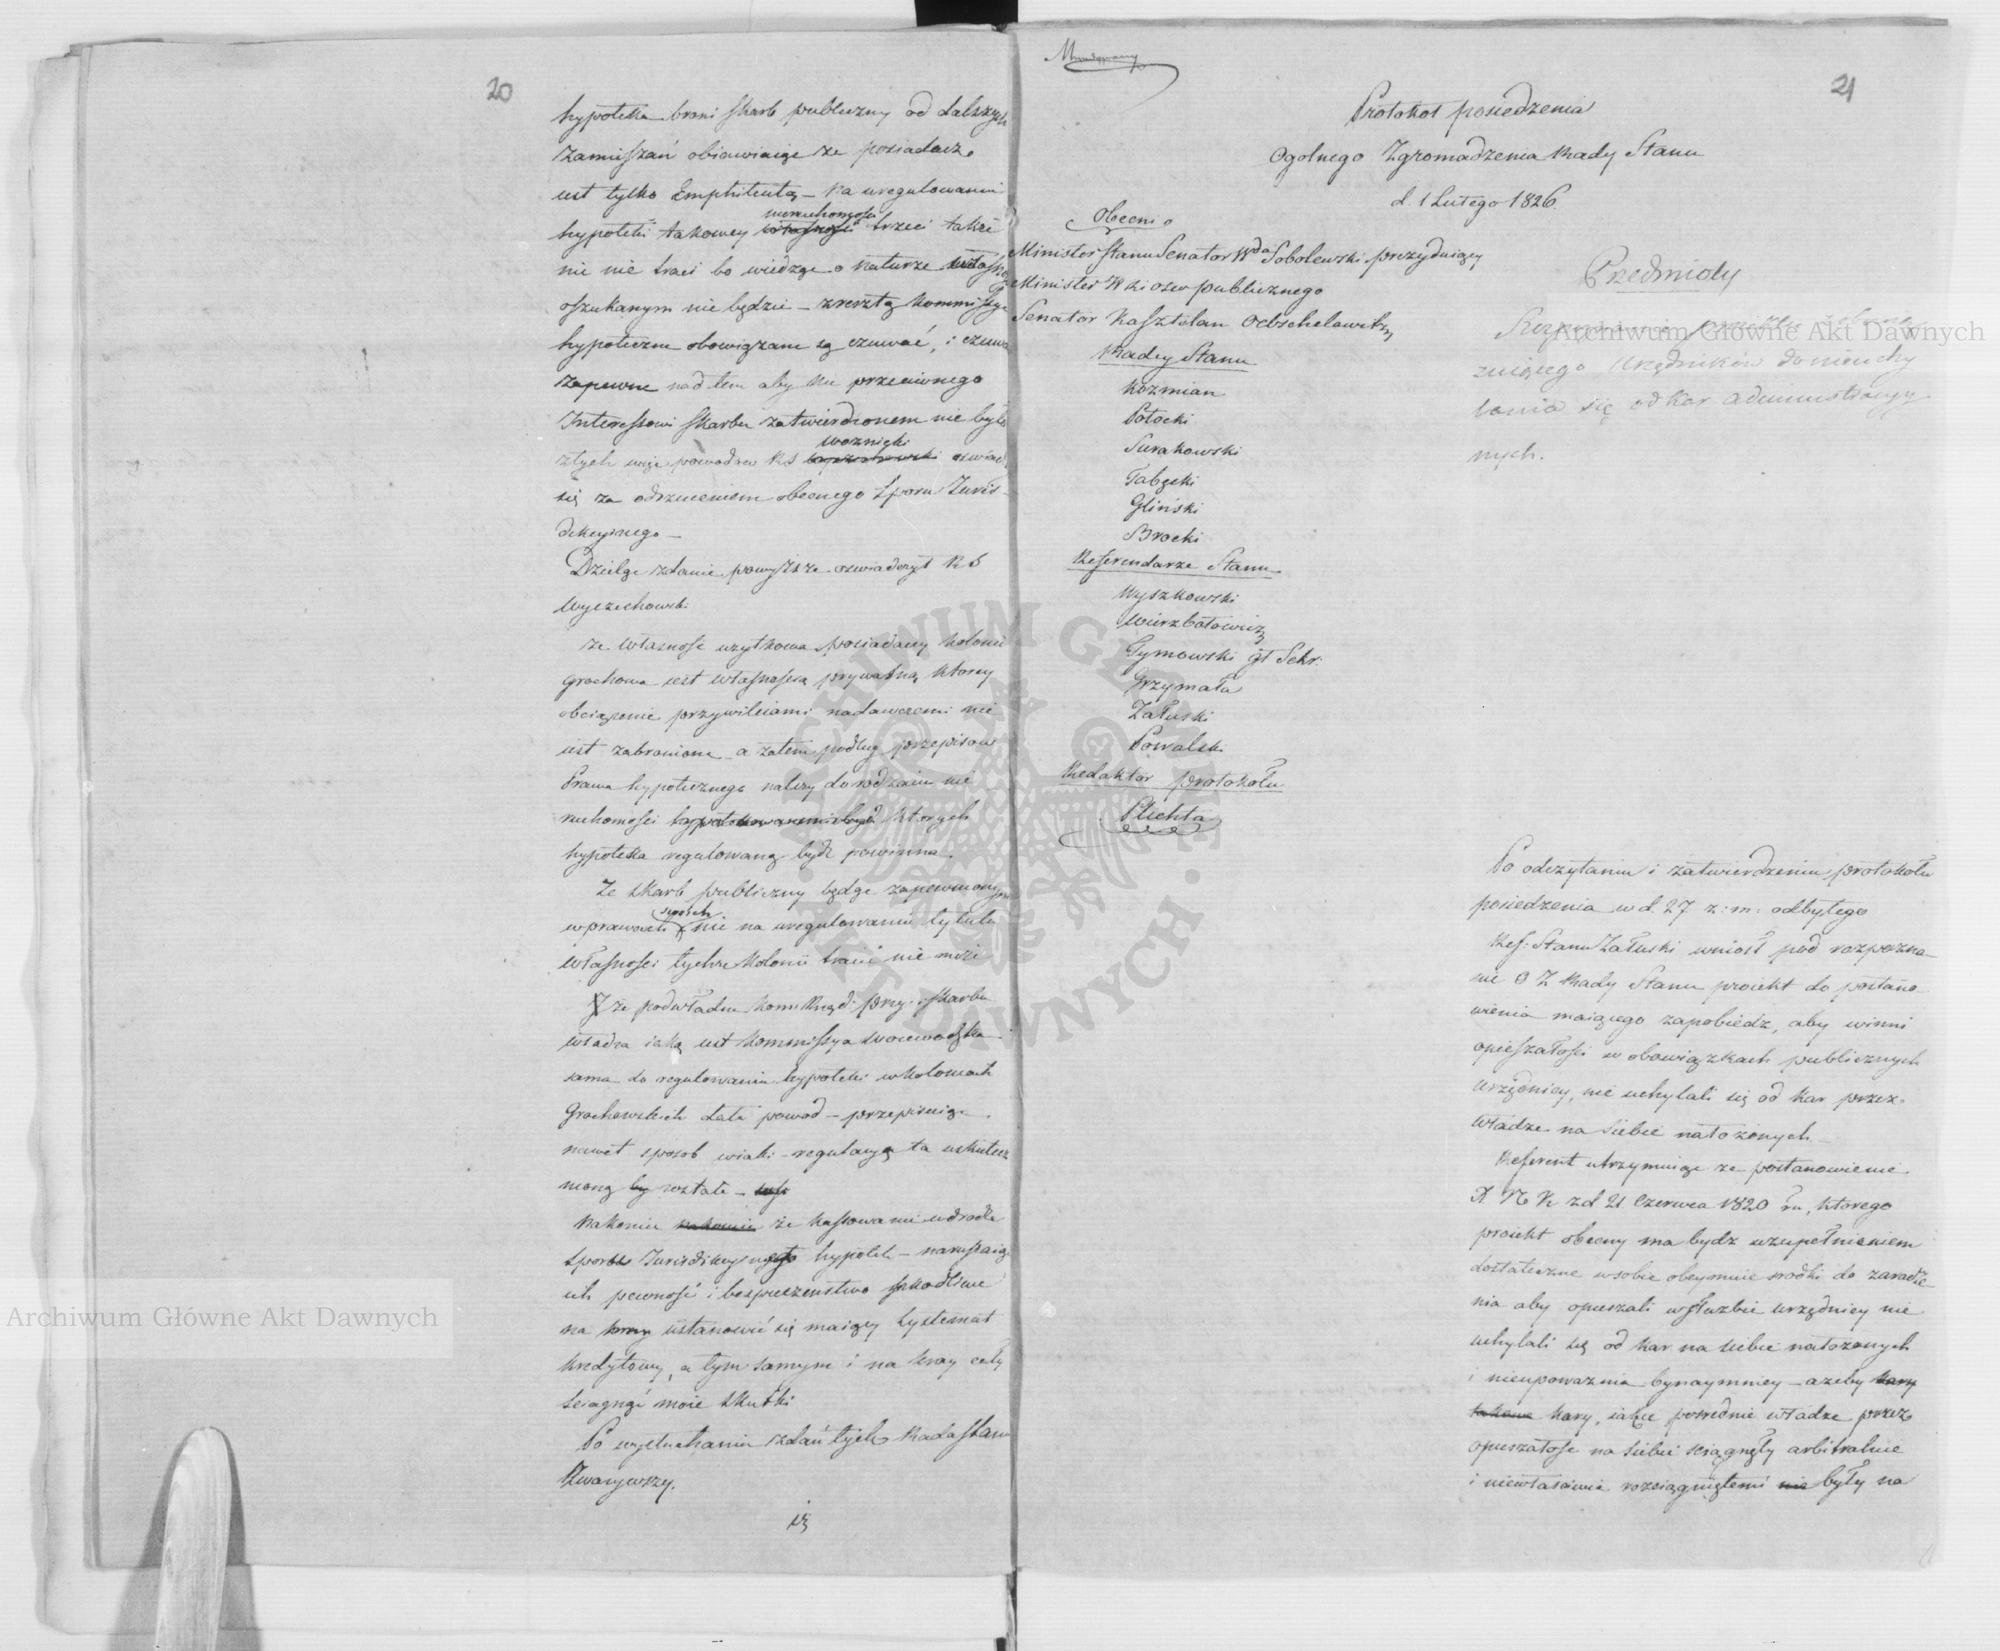 20
hypoteka broni skarb publiczny od dalszych
zamieszań obiawiaiąc że posiadacz
iest tylko Emphiteutą – na uregulowaniu
nieruchomości
hypoteki takowey własności trzeci także
nic nie traci bo wiedząc o naturze własności
oszukanym nie będzie – zresztą Kommissye
hypoteczne obowiązane są czuwać, i czuwa
zapewne nad tem aby nic przeciwnego
Interessowi skarbu zatwierdzonem nie było
Woznicki
z tych więc powodów RS oświad
się za odrzuceniem obecnego Sporu Juris-
dykcyinego –
Dzieląc zdanie powyższe oświadczył RS
Wyczechowski
że własność użytkowa posiadaczy kolonii
Grochowa iest własnością prywatną którey
obciążenie przywileiami nadawczemi nie
iest zabronione a zatem podług przepisów
Prawa hypotecznego należy do rodzaiu nie
ruchomości których
hypoteka regulowaną bydź powinna.
Że skarb publiczny będąc zapewniony
swoich
w prawach nic na uregulowaniu tytułu
własności tychże kolonii tracić nie może
że podwładna Kom: Rząd: przy: i skarbu
władza iaką iest Kommissya Woiewodzka
sama do regulowania hypoteki w koloniach
Grochowskich dała powód – przepisuiąc
nawet sposób w iaki – regulacya ta uskutecz
nioną by została –
Nakoniec nakoniec że kassowanie w drodze
sporu Jurisdikcyinego hypotek – naruszaiąc
ich pewność i bezpieczeństwo szkodliwe
na ustanowić się maiący Systemat
kredytowy, a tym samym i na kray cały
ściągnąć może skutki
Po wysłuchaniu zdań tych Rada Stanu
Zważywszy.
iż
21
Protokół posiedzenia
Ogólnego Zgromadzenia Rady Stanu
d. 1 Lutego 1826
Obecni
Minister Stanu Senator Wda Sobolewski prezyduiący
Minister W. i Ośw publicznego
Senator Kasztelan Ochelewitz
Radcy Stanu
Kozmian
Potocki
Surakowski
Tabęcki
Gliński
Brocki
Referendarze Stanu
Wyszkowski
Wierzbołowicz
Tymowski gł Sekr:
Grzymała
Załuski
Powalski
Redaktor protokołu
Plichta
Przedmioty
urzędników do nieuchy
lania się od kar administracyy
nych.
Po odczytaniu i zatwierdzeniu protokołu
posiedzenia w d. 27 z: m: odbytego
Ref: Stanu Załuski wniósł pod rozpozna-
nie O Z Rady Stanu proiekt do postano
wienia maiącego zapobiedz, aby winni
opieszałości w obowiązkach publicznych
urzędnicy, nie uchylali się od kar przez
władze na siebie nałożonych –
Referent utrzymuiąc że postanowienie
X N K z d 21 Czerwca 1820 ru, którego
proiekt obecny ma bydz uzupełnieniem
dostateczne w sobie obeymuie środki do zaradze
nia aby opieszali w służbie urzędnicy nie
uchylali się od kar na siebie nałożonych
i nieupoważnia bynaymniey – ażeby kary
takowe kary, iakie pośrednie władze przez
opieszałość na siebie ściągnęły arbitralnie
i niewłaściwie rozciągniętemi nie były na
Archiwum Główne Akt Dawnych
Archiwum Główne Akt Dawnych
ARCHIWUM GŁÓWNE AKT DAWNYCH